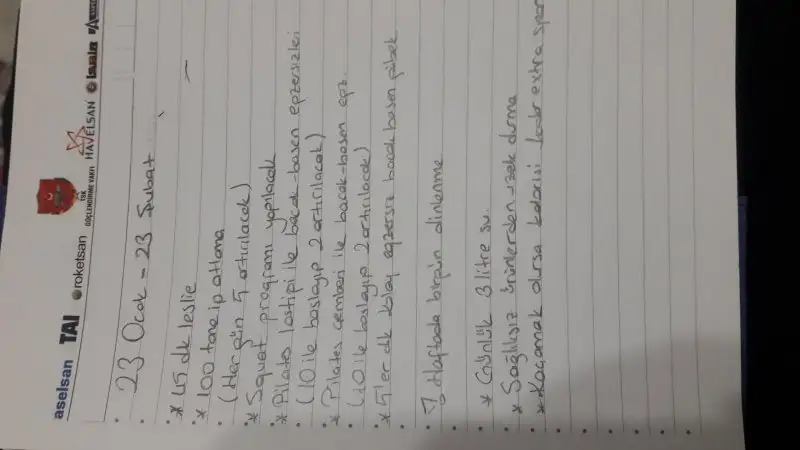 aselsan TAI roketsan TSK GÜÇLENDİRME VAKFI HAVELSAN
23 Ocak - 23 Şubat
* 45 dk leslie
* 100 tane ip atlama
(Her gün 5 artırılacak)
* Squat programı yapılacak
* Pilates lastiği ile bacak-basen egzersizleri
(10 ile başlayıp 2 artırılacak)
* Pilates çemberi ile bacak-basen egz.
(10 ile başlayıp 2 artırılacak)
* 5'er dk kolay egzersiz bacak basen göbek
Haftada birgün dinlenme
* Günlük 3 litre su
* Sağlıksız ürünlerden uzak durma
* Kaçamak olursa kalorisi kadar extra spor